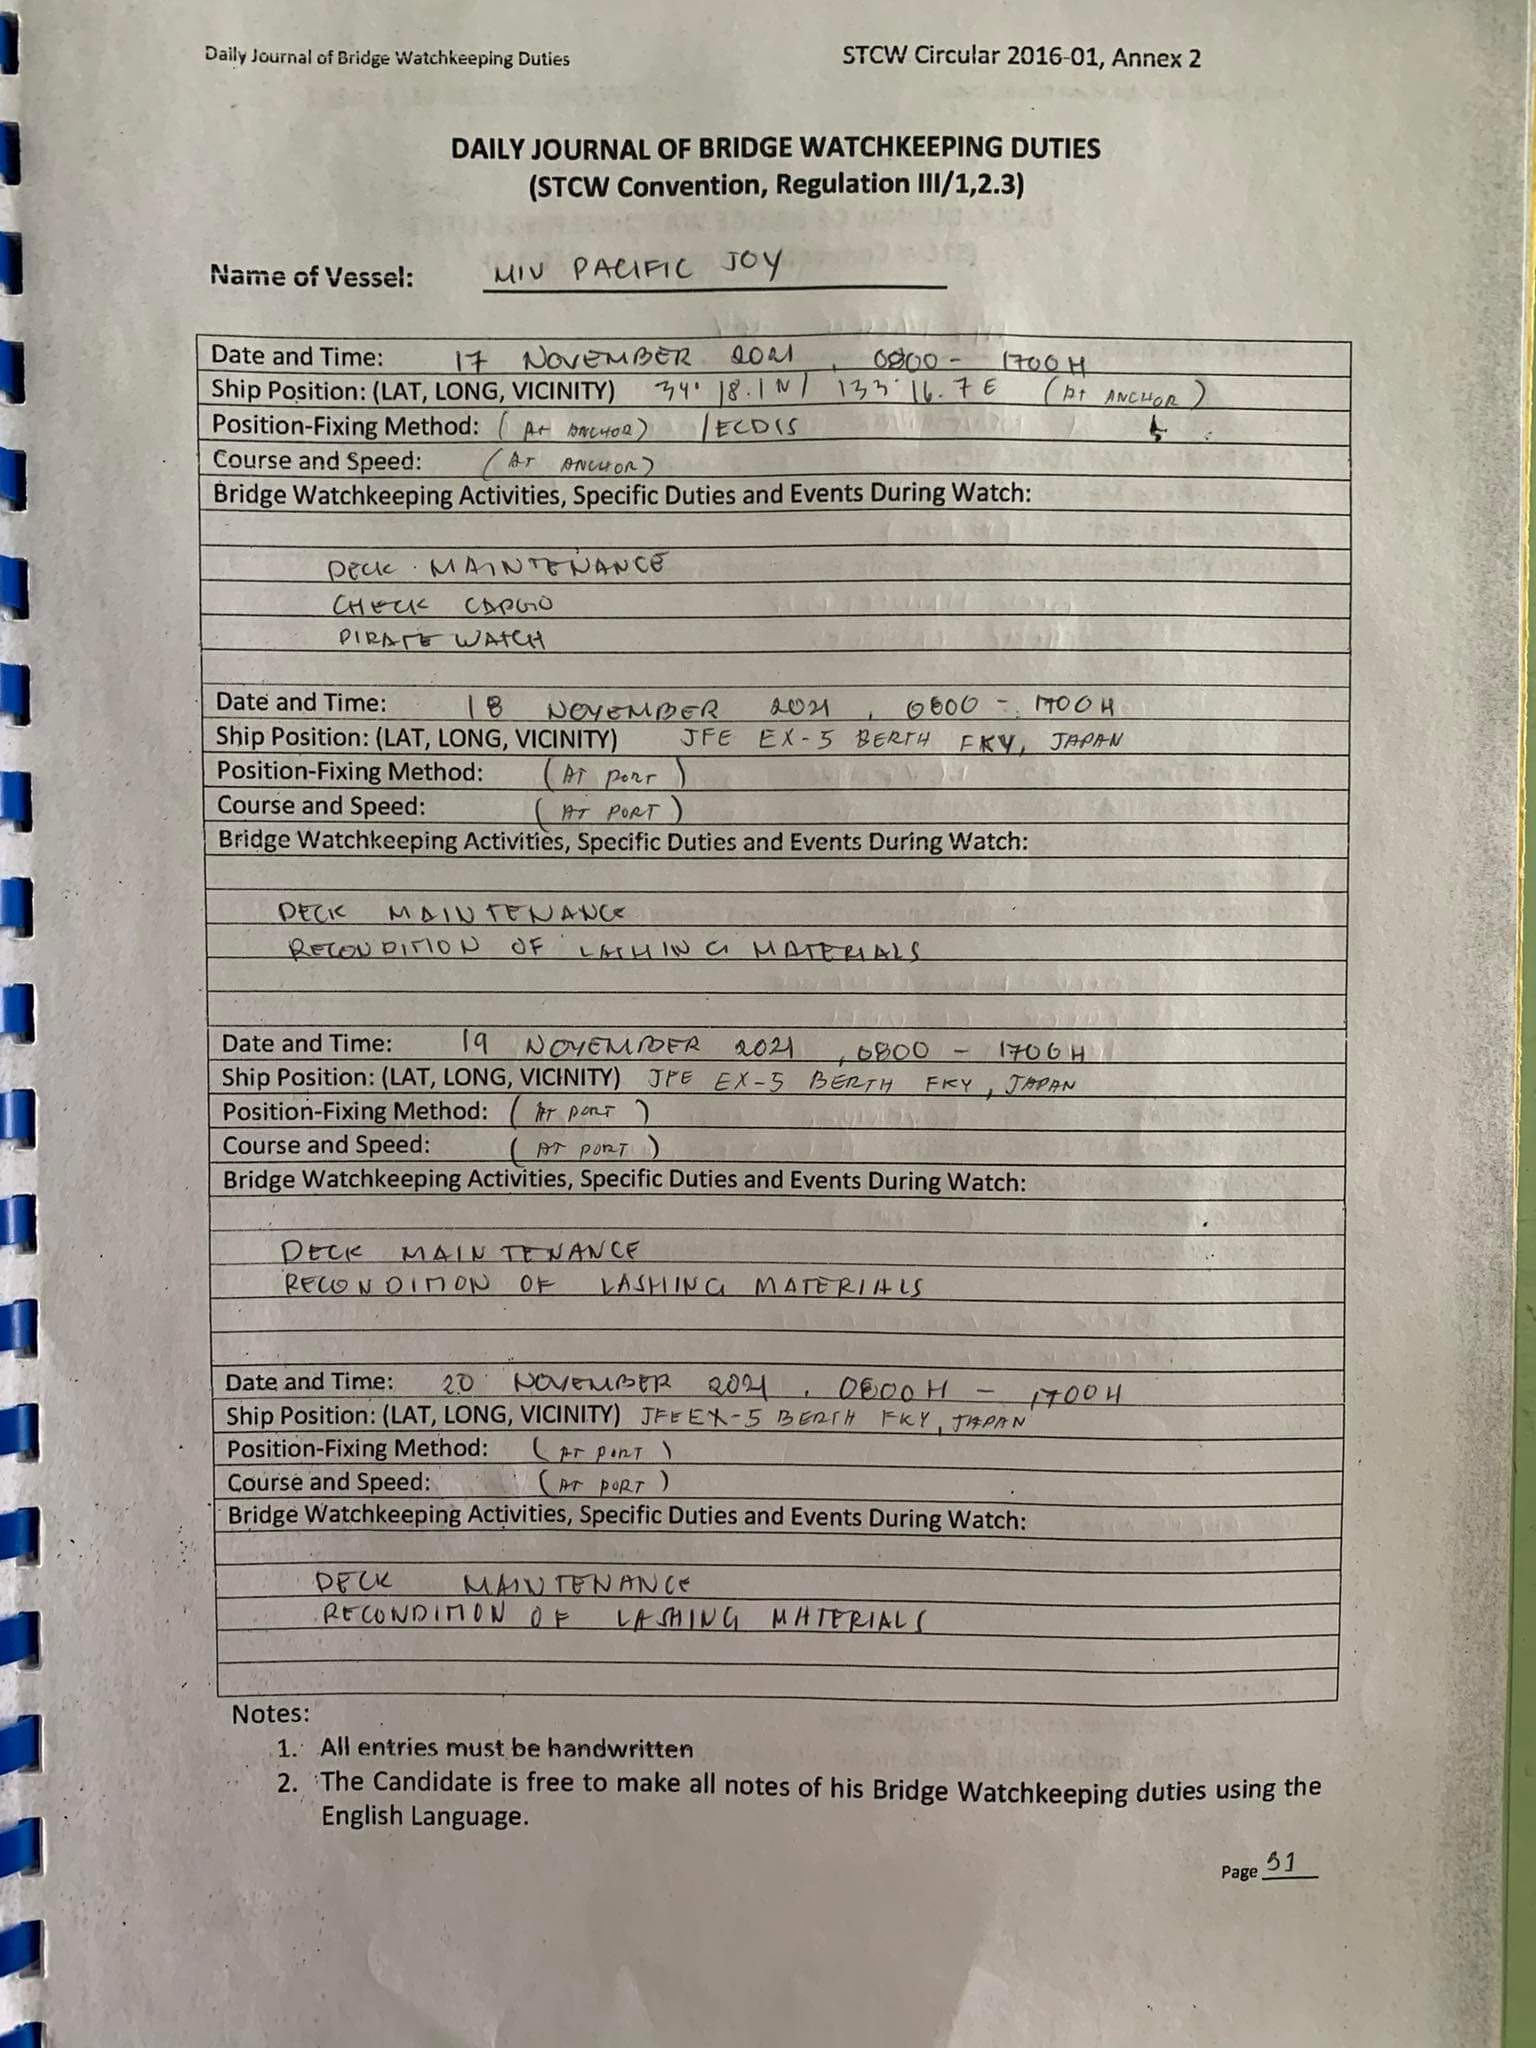 Daily Journal of Bridge Watchkeeping Duties STCW Circular 2016-01, Annex 2
DAILY JOURNAL OF BRIDGE WATCHKEEPING DUTIES
(STCW Convention, Regulation III/1,2.3)
Name of Vessel: M/V PACIFIC JOY
Date and Time: 17 NOVEMBER 2021, 0800 - 1700H
Ship Position: (LAT, LONG, VICINITY) 34° 18.1 N / 133° 16.7 E (At ANCHOR)
Position-Fixing Method: (At ANCHOR) /ECDIS
Course and Speed: (AT ANCHOR)
Bridge Watchkeeping Activities, Specific Duties and Events During Watch:
DECK MAINTENANCE
CHECK CARGO
PIRATE WATCH
Date and Time: 18 NOVEMBER 2021, 0800 - 1700H
Ship Position: (LAT, LONG, VICINITY) JFE EX-5 BERTH FKY, JAPAN
Position-Fixing Method: (AT PORT)
Course and Speed: (AT PORT)
Bridge Watchkeeping Activities, Specific Duties and Events During Watch:
DECK MAINTENANCE
RECONDITION OF LASHING MATERIALS
Date and Time: 19 NOVEMBER 2021, 0800 - 1700H
Ship Position: (LAT, LONG, VICINITY) JFE EX-5 BERTH FKY, JAPAN
Position-Fixing Method: (AT PORT)
Course and Speed: (AT PORT)
Bridge Watchkeeping Activities, Specific Duties and Events During Watch:
DECK MAINTENANCE
RECONDITION OF LASHING MATERIALS
Date and Time: 20 NOVEMBER 2021, 0800H - 1700H
Ship Position: (LAT, LONG, VICINITY) JFE EX-5 BERTH FKY, JAPAN
Position-Fixing Method: (AT PORT)
Course and Speed: (AT PORT)
Bridge Watchkeeping Activities, Specific Duties and Events During Watch:
DECK MAINTENANCE
RECONDITION OF LASHING MATERIALS
Notes:
1. All entries must be handwritten
2. The Candidate is free to make all notes of his Bridge Watchkeeping duties using the
English Language.
Page 31